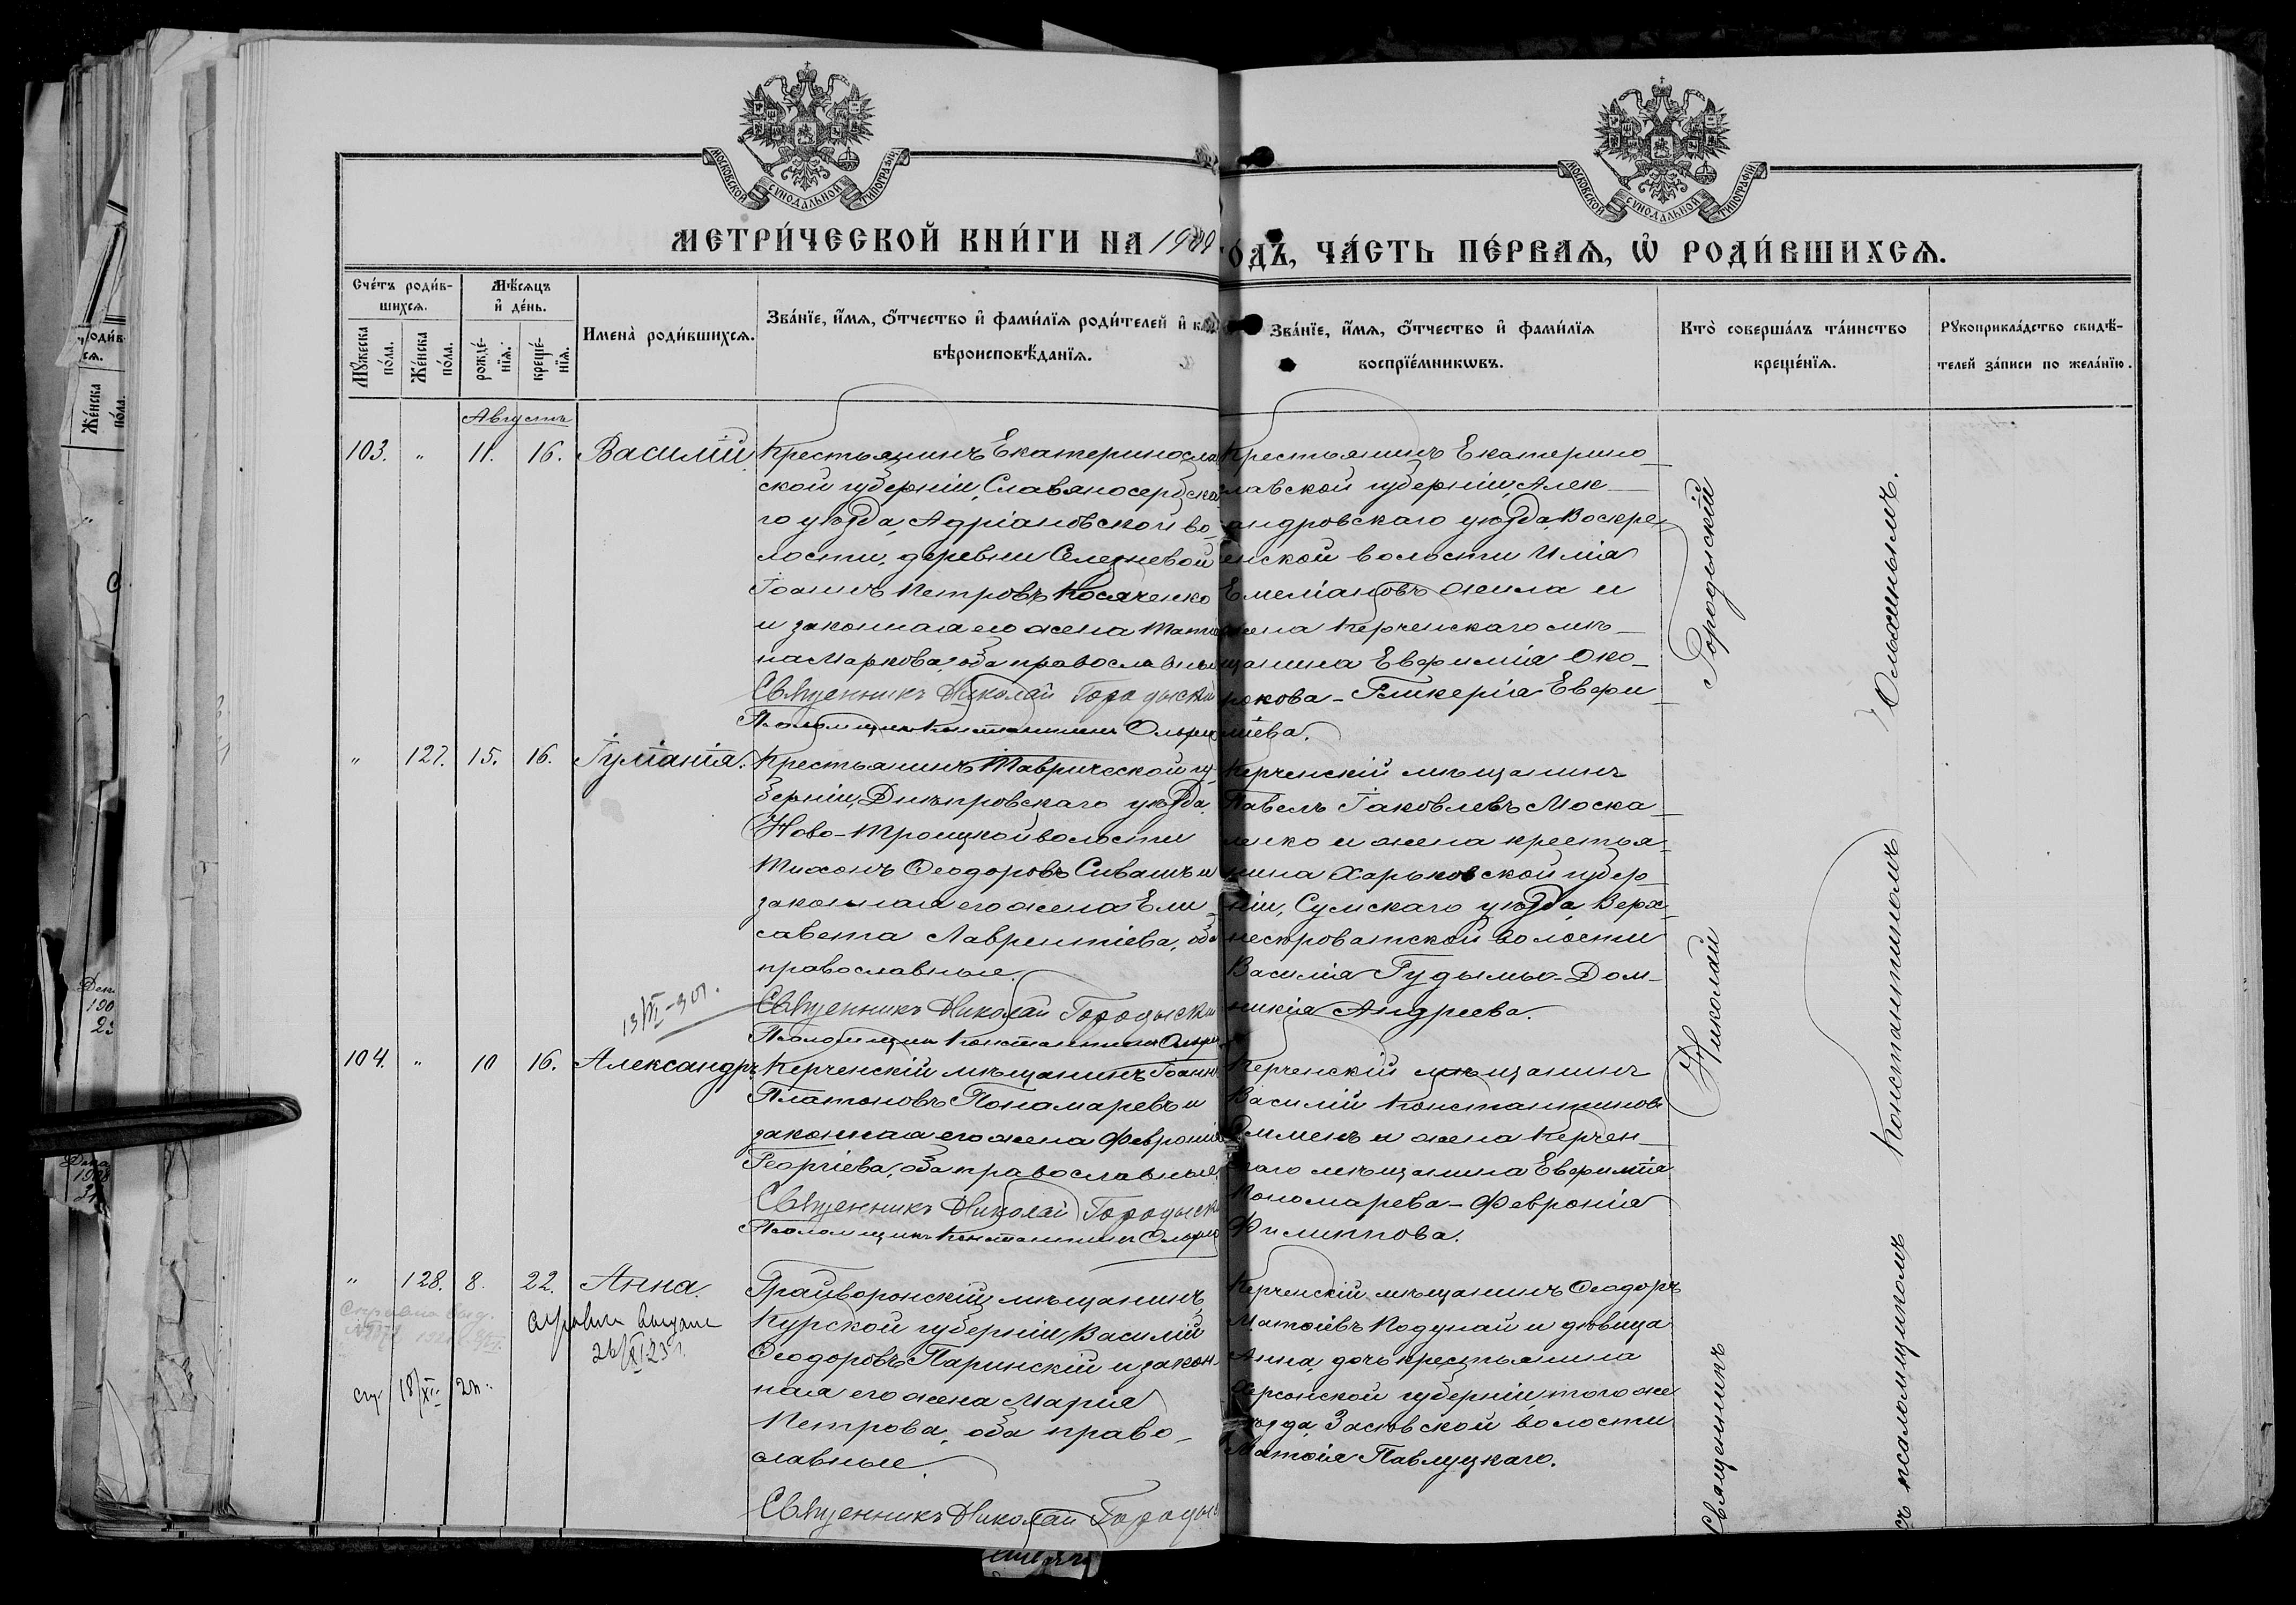 МОСКОВСКОЙ СУНОДАЛЬНОЙ ТИПОГРАФІИ
МОСКОВСКОЙ СУНОДАЛЬНОЙ ТИПОГРАФІИ
МЕТРИ́ЧЕСКОЙ КНИ́ГИ НА 1909 ГО́ДЪ, ЧА́СТЬ ПЕ́РВАЯ, Ѿ РОДИ́ВШИХСЯ.
Сче́тъ роди́в-
шихся.
Мѣ́сяцъ
и де́нь.
Му́жеска по́ла.
Же́нска по́ла.
рожде́-
нія.
креще́-
нія.
Имена̀ роди́вшихся.
Зва́нїе, и́мя, ѻ́тчество и фами́лїя роди́телей и
вѣроисповѣ́данїя.
Зва́нїе, и́мя, ѻ́тчество и фами́лїя
воспрїе́мниковъ.
Кто̀ соверша́лъ та́инство
креще́нїя.
Рукоприкла́дство свидѣ́-
телей за́писи по жела́нїю.
Августъ
103. " 11. 16. Василій
Крестьянинъ Екатеринослав
ской губерніи, Славяносербска
го уѣзда, Адріановской во-
лости, деревни Селезневой
Іоаннъ Петровъ Косяченко
и законная его жена Татья
на Маркова, оба православные
Священникъ Николай Городыскій
Псаломщикъ Константинъ
Крестьянинъ Екатерино-
славской губерніи, Алек-
сандровскаго уѣзда, Воскре-
сенской волости Илія
Емеліановъ Жила и
жена Керченскаго мѣ-
щанина Евфимія Око-
рокова - Гликерія Евфи-
міева.
" 127. 15. 16. Іуліанія.
Крестьянинъ Таврической гу-
берніи, Днѣпровскаго уѣзда,
Ново-Троицкой волости
Тихонъ Ѳеодоровъ Сивашъ и
законная его жена Ели-
савета Лаврентіева, оба
православные.
Священникъ Николай Городыскій
Псаломщикъ Константинъ
13/VI-30г.
Керченскій мѣщанинъ
Павелъ Іаковлевъ Моска-
ленко и жена крестья-
нина Харьковской губер-
ніи, Сумскаго уѣзда, Верх-
несыроватской волости
Василія Гудымы - Дом-
никія Андреева.
104. " 10 16. Александръ
Керченскій мѣщанинъ Іоаннъ
Платоновъ Пономаревъ и
законная его жена Февронія
Георгіева, оба православные.
Священникъ Николай Городыск
Псаломщикъ Константинъ
Керченскій мѣщанинъ
Василій Константиновъ
и жена Керчен-
скаго мѣщанина Евфимія
Пономарева - Февронія
Филиппова.
" 128. 8. 22. Анна.
справка выдана
26/XI 23 г.
18/XI 2
Грайворонскій мѣщанинъ
Курской губерніи, Василій
Ѳеодоровъ Паринскій и закон
ная его жена Марія
Петрова, оба право-
славные.
Священникъ Николай Городыс
Керченскій мѣщанинъ Ѳеодоръ
Матѳіевъ Подунай и дѣвица
Анна, дочь крестьянина
Херсонской губерніи, того же
уѣзда, Засѣвской волости
Матѳія Павлуцкаго.
Священникъ Николай Городыскій
съ псаломщикомъ Константиномъ